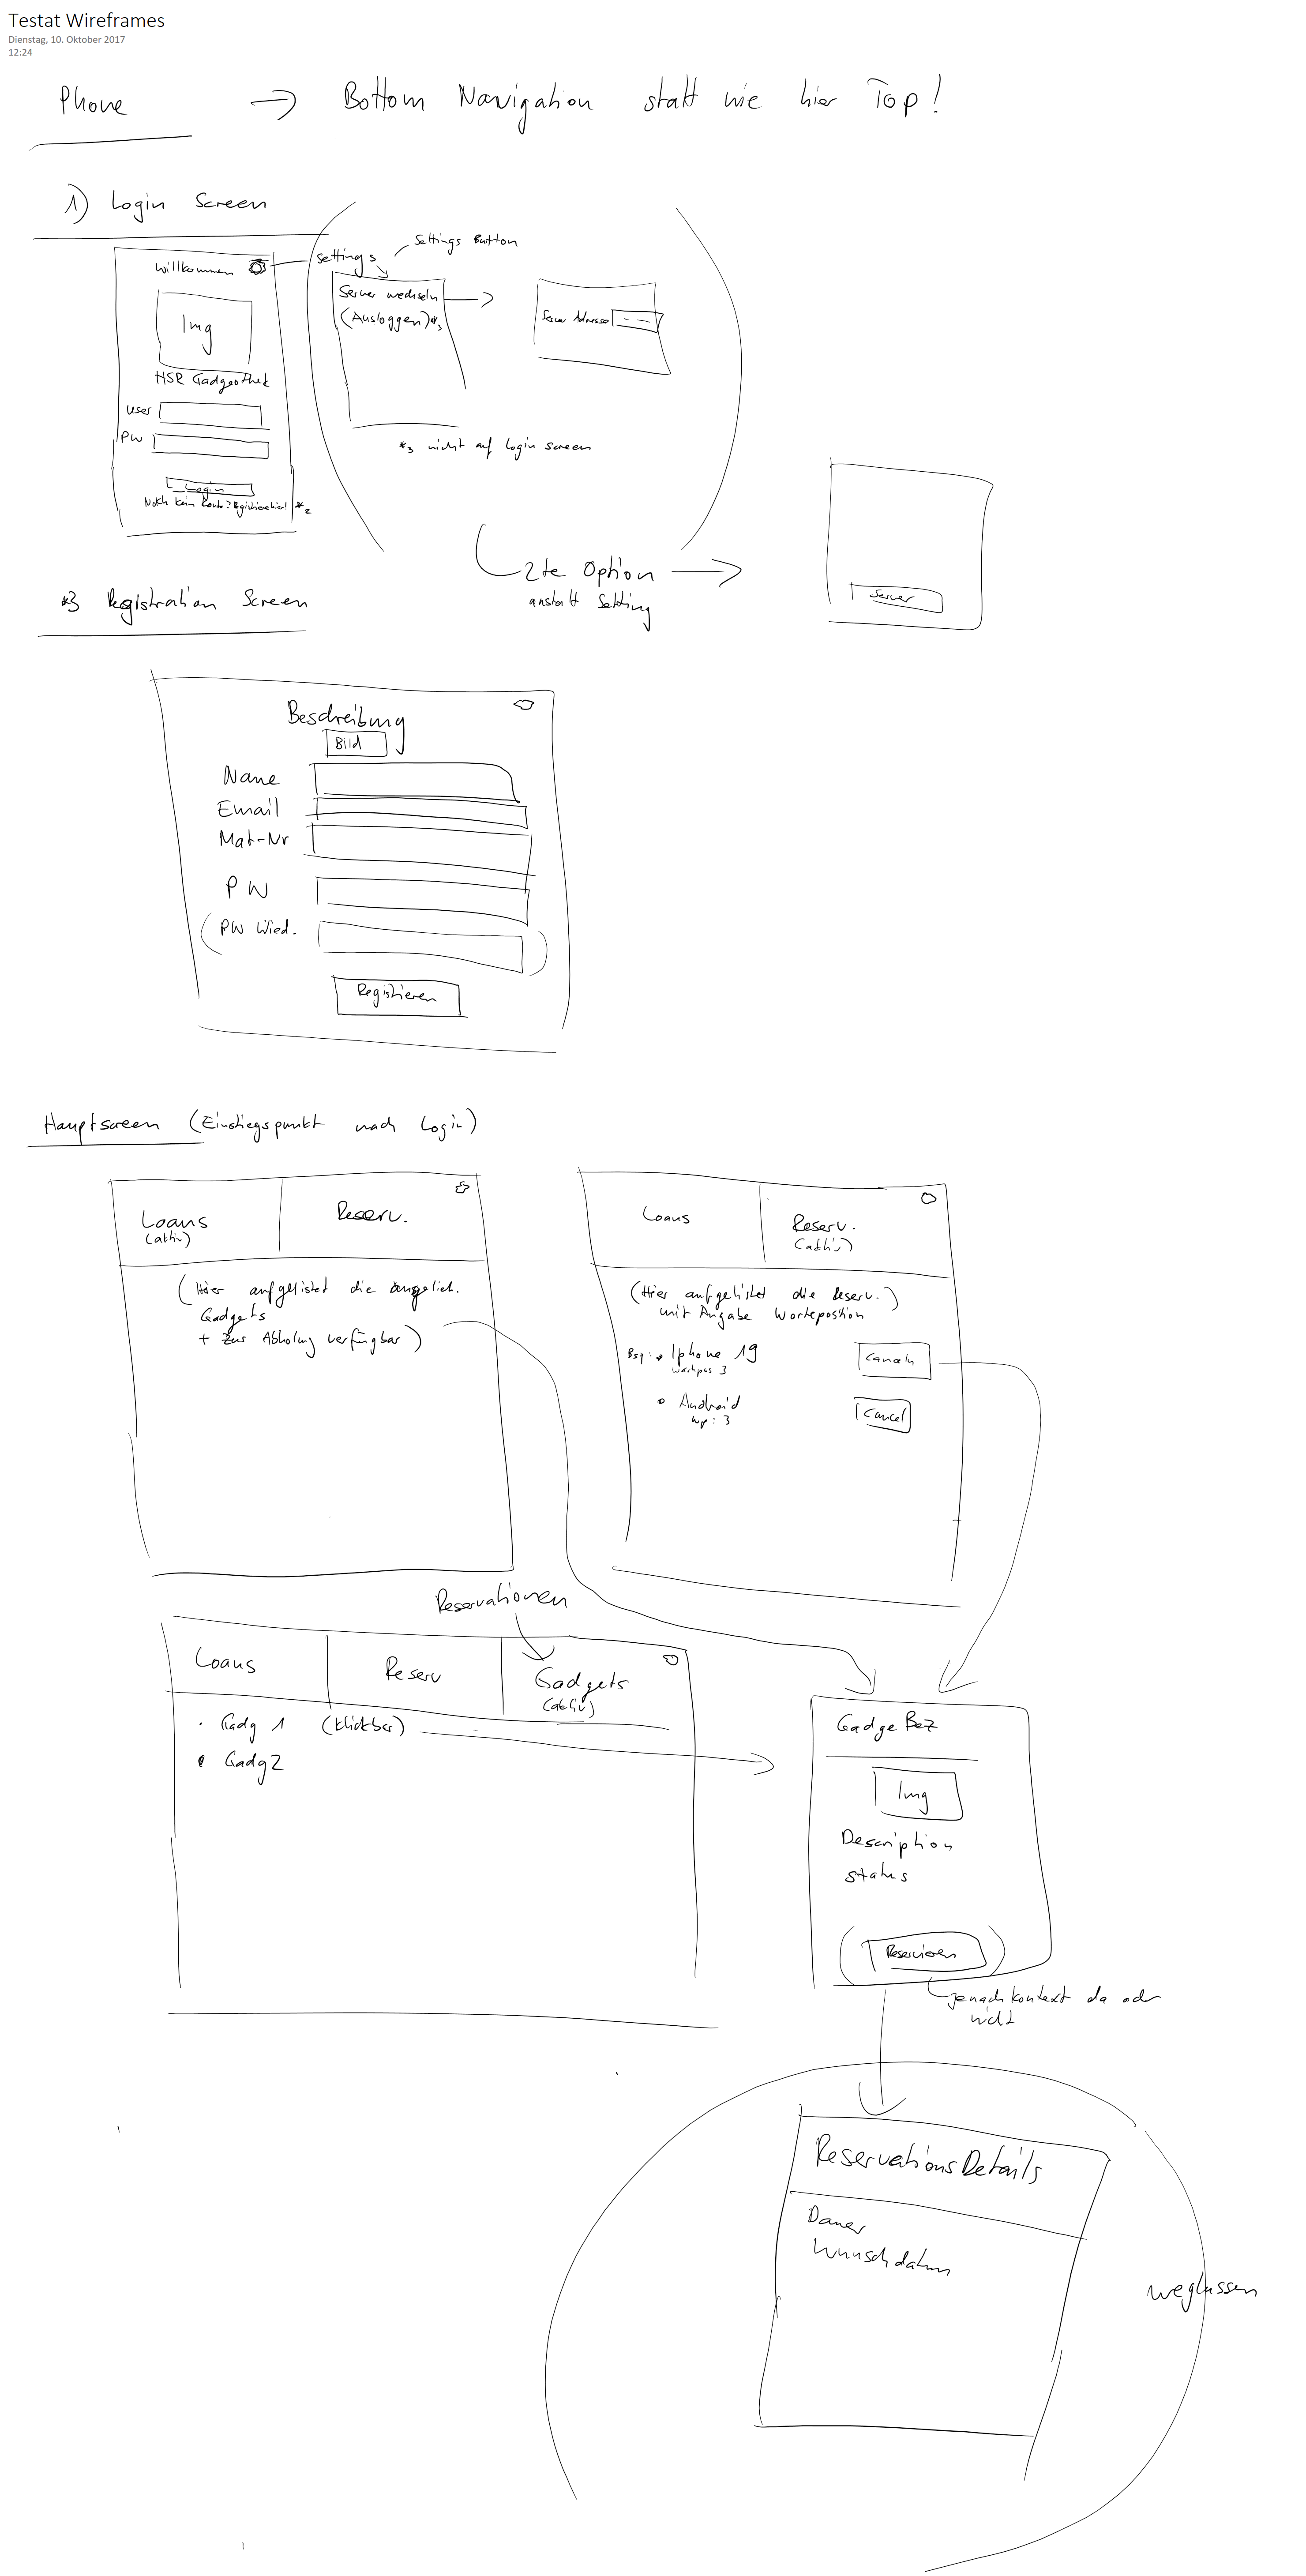 Testat Wireframes
Dienstag, 10. Oktober 2017
12:24
Phone → Bottom Navigation statt wie hier Top!
1) Login Screen
Willkommen
Img
HSR Gadgeothek
User
PW
Login
Noch kein Konto? Registriere hier! *2
Settings
Settings Button
Server wechseln
(Ausloggen)*3
Server Adresse
*3 nicht auf Login Screen
2te Option →
anstatt Setting
Server
*3 Registration Screen
Beschreibung
Bild
Name
Email
Mat-Nr
PW
(PW Wied. )
Registrieren
Hauptscreen (Einstiegspunkt nach Login)
Loans
(aktiv)
Reserv.
(Hier aufgelistet die
Gadgets
+ zur Abholung verfügbar)
Loans
Reserv.
(aktiv)
(Hier aufgelistet die Reserv.)
mit Angabe Warteposition
Bsp: • Iphone 19
Wartepos 3
Canceln
• Android
wp: 3
Cancel
Reservationen
Loans
Reserv
Gadgets
(aktiv)
• Gadg 1 (klickbar)
• Gadg 2
Gadge Bez
Img
Description
status
(Reservieren)
jenach kontext da od
nicht
ReservationsDetails
Dauer
Wunschdatum
weglassen